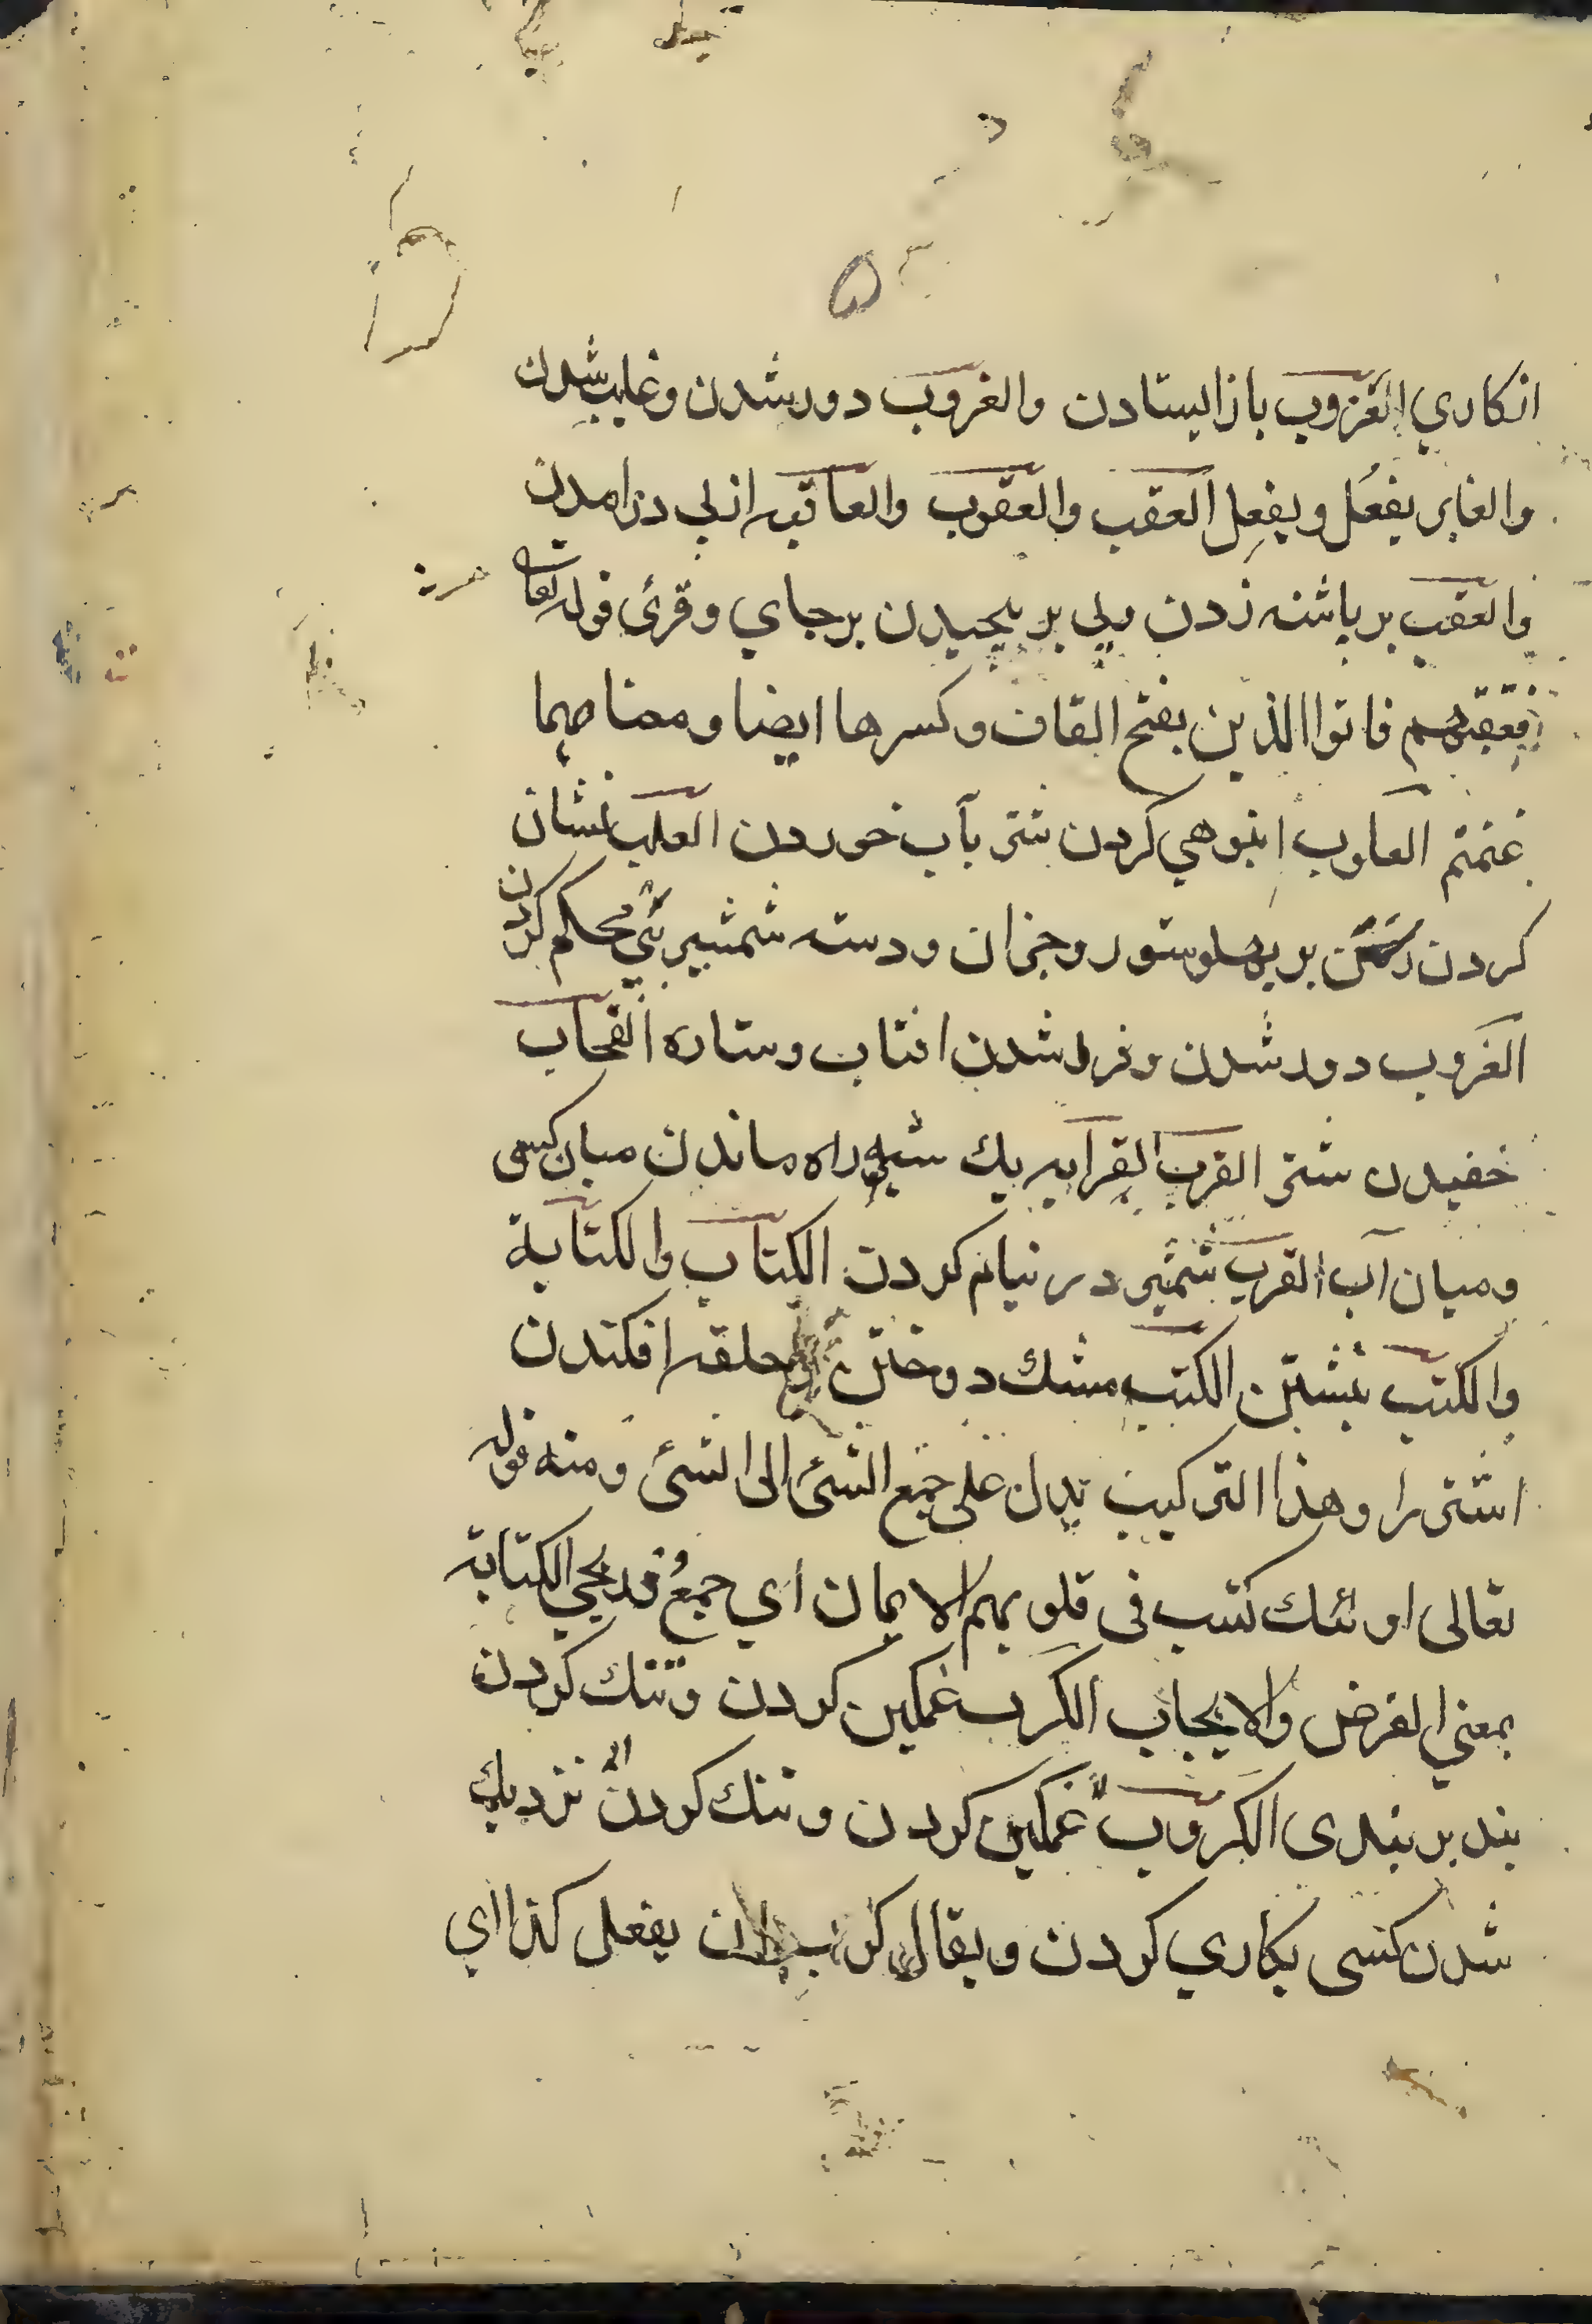 ۵
از کاري العُزوب باز ایستادن والغروب دور شدن وغایب شدن
والغابر یفعُل ویفعِل العقب والعقوب والعاقبه از پی در امدن
والعقب بر پاشنه زدن پی بر پیچیدن بر جاي وقرئ قوله تعالى
فعقبتم فاتوا الذین بفتح القاف وکسرها ایضا ومعناهما
غنمتم العلوب انبوهي کردن شتر بآب خوردن العلب نشان
کردن رسن بر پهلو ستور وجزان ودسته شمشیر بپی محکم کردن
الغروب دور شدن وفرو شدن افتاب وستاره القحاب
خفیدن شتر القرب القرابه یك شبه راه ماندن میان کسی
ومیان آب القرب شمشیر در نیام کردن الکتاب والکتابة
والکتب نبشتن الکتب مشك دوختن حلقه افکندن
اشتر را وهذا الترکیب یدل علی جمع الشئ الی الشئ ومنه قوله
تعالی اولئك کتب فی قلوبهم الایمان اي جمع وقد یجي الکتابة
بمعني الفرض والایجاب الکرب غمکین کردن وتنك کردن
بند بر بندی الکروب غمکین کردن وتنك کردن نزدیك
شدن کسی بکاري کردن ویقال کرب ان یفعل کذا اي